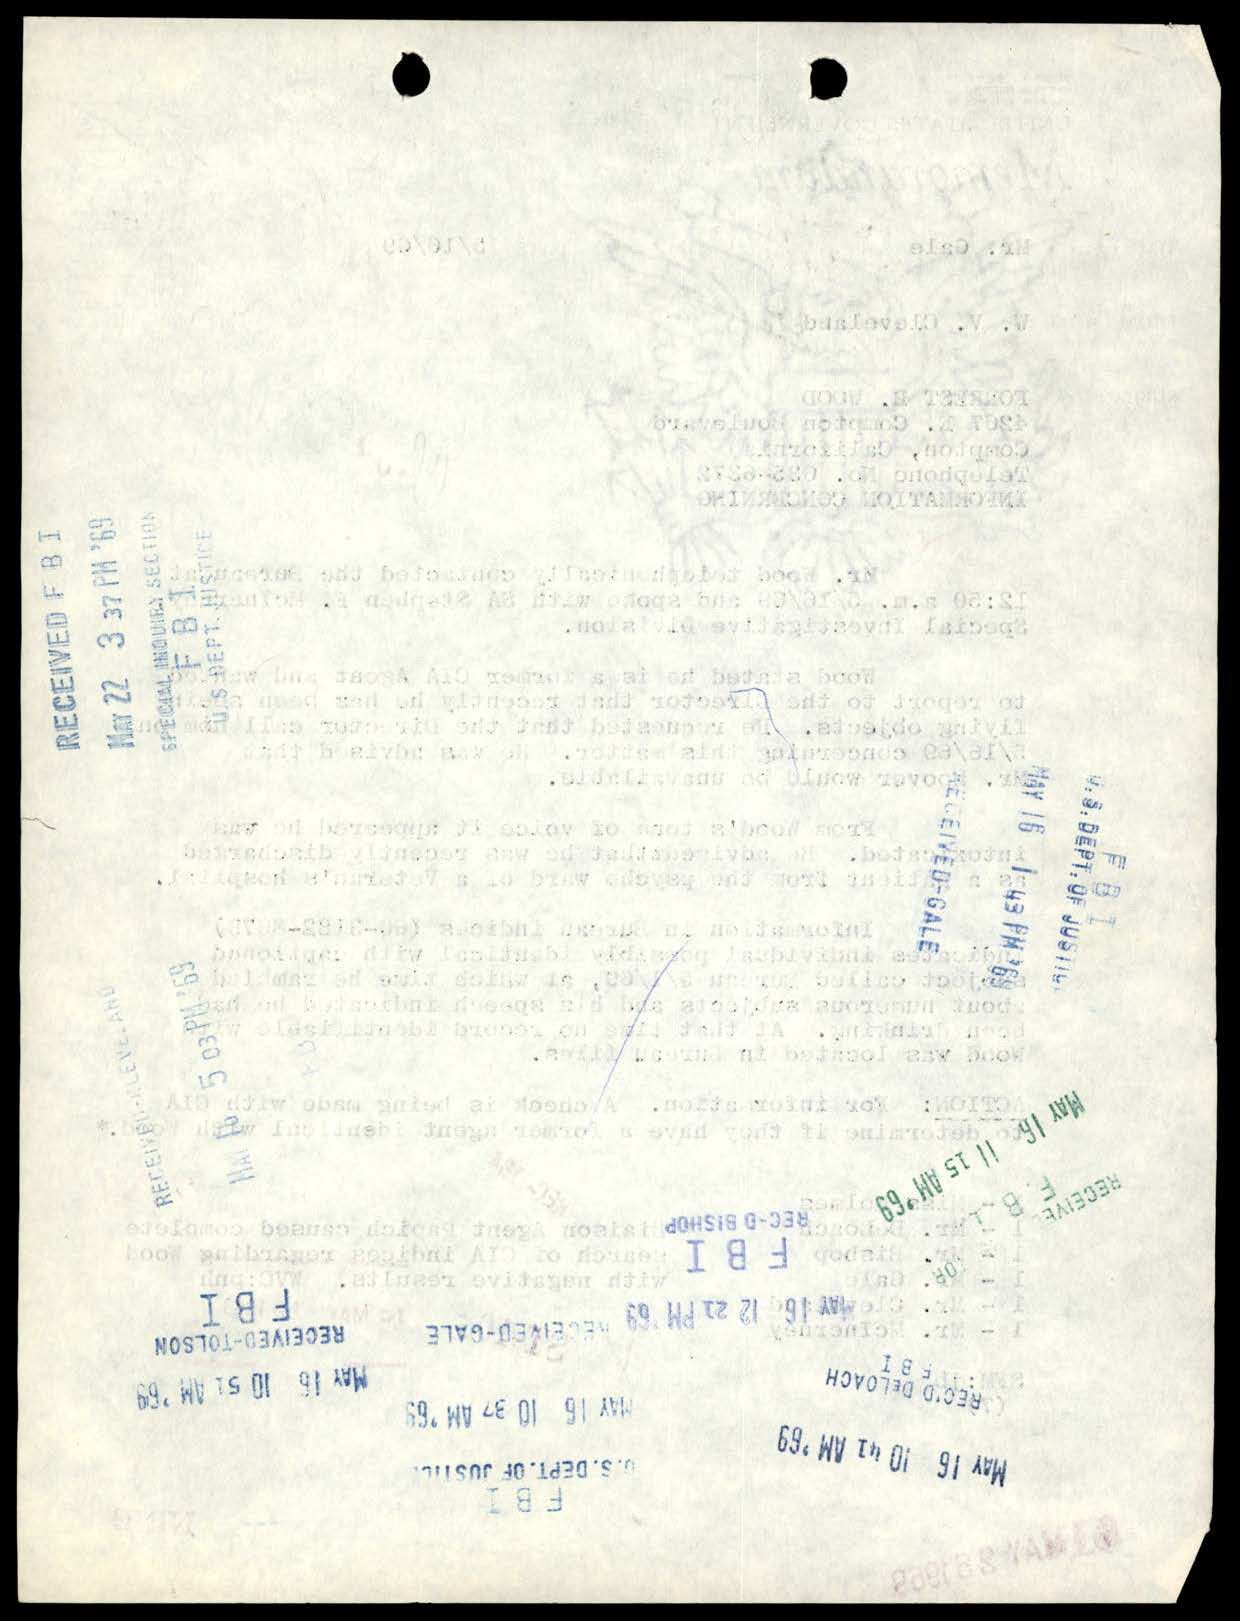 UNITED STATES GOVERNMENT
Memorandum
Mr. Gale
5/16/69
W. V. Cleveland
FORREST E. WOOD
4207 E. Compton Boulevard
Compton, California
Telephone No. 635-6372
INFORMATION CONCERNING
Mr. Wood telephonically contacted the Bureau at
12:50 a.m. 5/16/69 and spoke with SA Stephen F. McInerney
Special Investigative Division.
Wood stated he is a former CIA Agent and wanted
to report to the Director that recently he has been seeing
flying objects. He requested that the Director call him on
5/16/69 concerning this matter. He was advised that
Mr. Hoover would be unavailable.
From Wood's tone of voice it appeared he was
intoxicated. He advised that he was recently discharged
as a patient from the psycho ward of a Veteran's hospital.
Information in Bureau indices
indicates individual possibly identical with captioned
subject called Bureau at which time he rambled
about numerous subjects and his speech indicated he had
been drinking. At that time no record identifiable with
Wood was located in Bureau files.
ACTION: For information. A check is being made with CIA
to determine if they have a former agent identical with Wood.*
1 - Mr. DeLoach
1 - Mr. Bishop
1 - Mr. Gale
1 - Mr. Cleveland
1 - Mr. McInerney
*Liaison Agent Papich caused complete
search of CIA indices regarding Wood
with negative results. WVC:pnh
RECEIVED F B I
MAY 22 3 37 PM '69
SPECIAL INQUIRY SECTION
F B I
U.S. DEPT. JUSTICE
RECEIVED-GALE
MAY 16 1 43 PM '69
U.S. DEPT. OF JUSTICE
F B I
RECEIVED-CLEVELAND
MAY 16 5 03 PM '69
MAY 16 11 15 AM '69
RECEIVED
F B I
REC-D BISHOP
F B I
MAY 16 12 21 PM '69
F B I
RECEIVED-TOLSON
MAY 16 10 51 AM '69
RECEIVED-GALE
MAY 16 10 37 AM '69
U.S. DEPT. OF JUSTICE
F B I
F B I
REC'D DELOACH
MAY 16 10 41 AM '69
MAY 28 1969